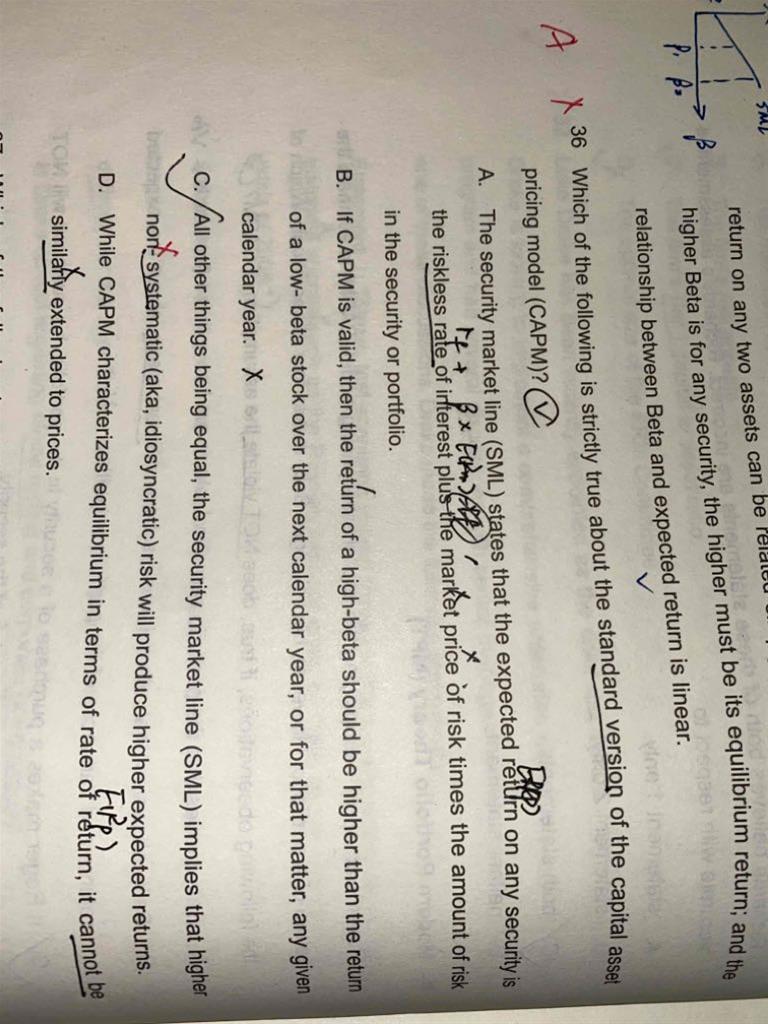 SML
β₁ β₂ β
return on any two assets can be related
higher Beta is for any security, the higher must be its equilibrium return; and the
relationship between Beta and expected return is linear.
A X 36 Which of the following is strictly true about the standard version of the capital asset
pricing model (CAPM)?
E(Rp)
A. The security market line (SML) states that the expected return on any security is
rf + β × E(Rm)
the riskless rate of interest plus the market price of risk times the amount of risk
in the security or portfolio.
B. If CAPM is valid, then the return of a high-beta should be higher than the return
of a low- beta stock over the next calendar year, or for that matter, any given
calendar year. X
C. All other things being equal, the security market line (SML) implies that higher
non-systematic (aka, idiosyncratic) risk will produce higher expected returns.
E(Rp)
D. While CAPM characterizes equilibrium in terms of rate of return, it cannot be
similarly extended to prices.